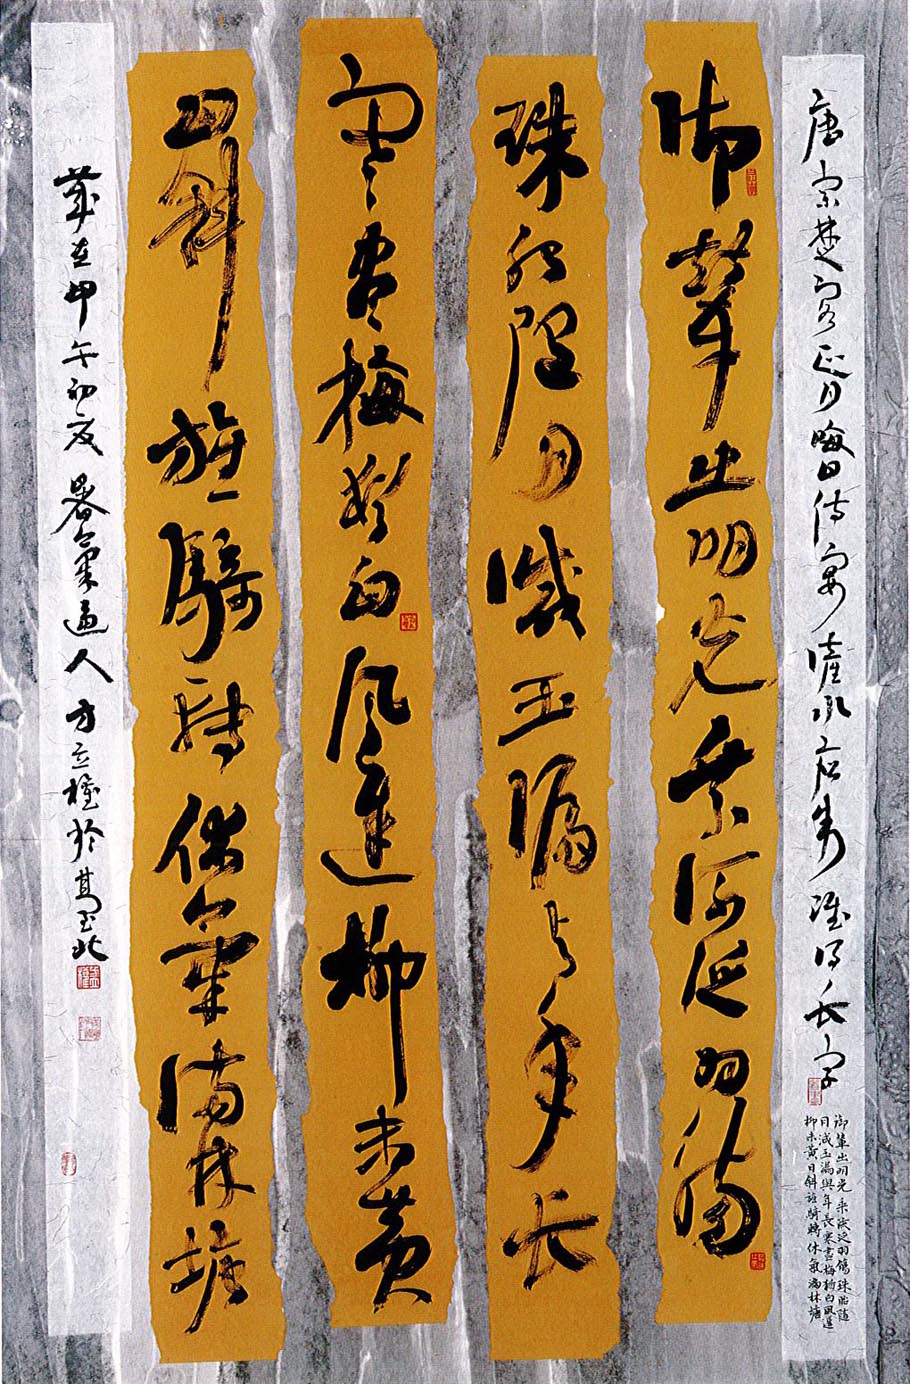 唐宗楚客正月晦日侍宴滻水應制賦得長字
御輦出明光乘流泛羽觴珠胎隨
月減玉漏與年長寒盡梅猶白風遲
柳未黃日斜旌騎轉休氣滿林塘
御輦出明光乘流泛羽觴
珠胎隨月減玉漏與年長
寒盡梅猶白風遲柳未黃
日斜旌騎轉休氣滿林塘
歲在甲午初夏暑氣逼人方立權於北